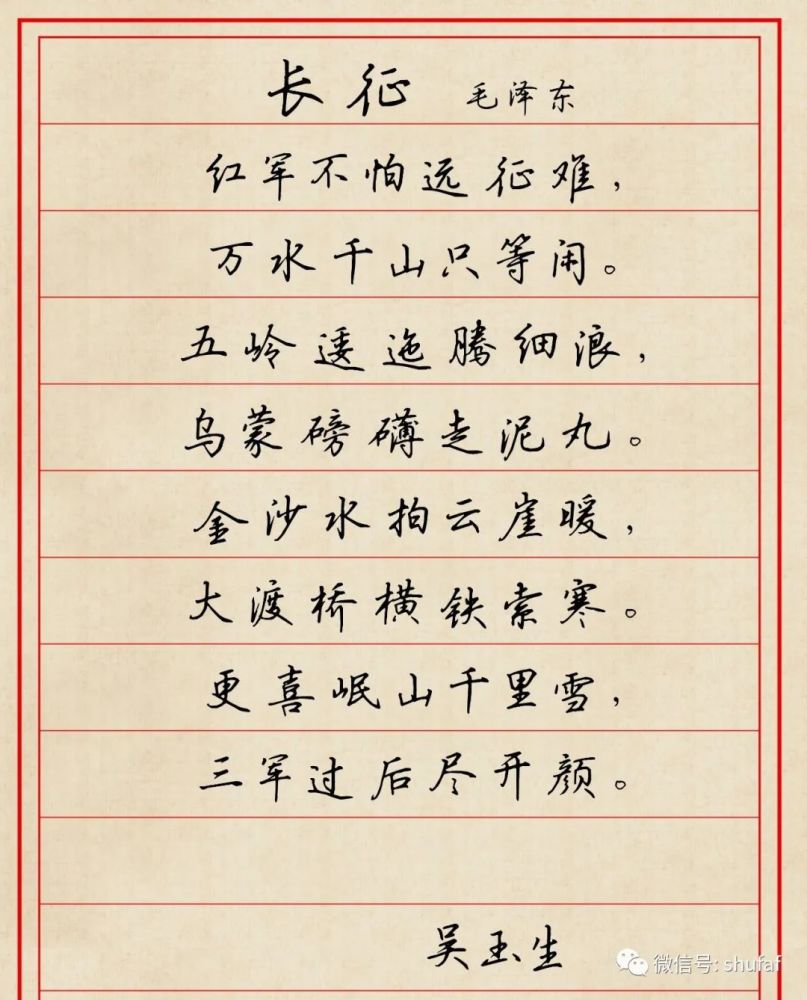 长征 毛泽东
红军不怕远征难，
万水千山只等闲。
五岭逶迤腾细浪，
乌蒙磅礴走泥丸。
金沙水拍云崖暖，
大渡桥横铁索寒。
更喜岷山千里雪，
三军过后尽开颜。
吴玉生
微信号: shufaf